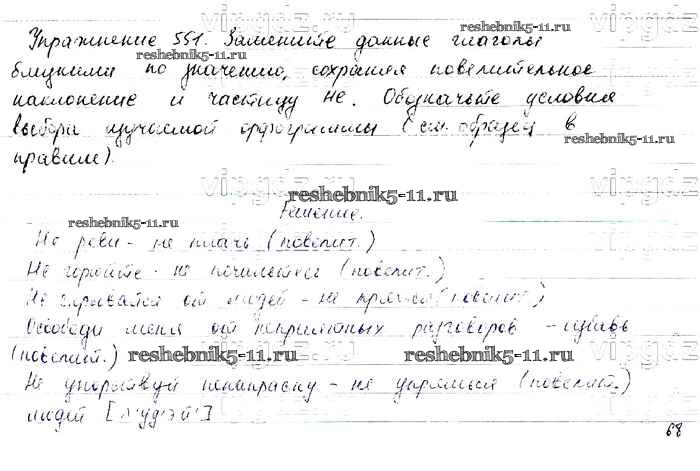 reshebnik5-11.ru
Упражнение 551. Замените данные глаголы
reshebnik5-11.ru
близкими по значению, сохраняя повелительное
наклонение и частицу не. Обозначьте условия
выбора изучаемой орфограммы (см. образец в
reshebnik5-11.ru
правиле).
reshebnik5-11.ru
Решение.
reshebnik5-11.ru
Не реви - не плачь (повелит.)
Не горюйте - не (повелит.)
Не скрывайся от людей - не прячься (повелит.)
Освободи меня от неприятных разговоров - избавь
(повелит.) reshebnik5-11.ru reshebnik5-11.ru
Не упорствуй понапрасну - не упрямься (повелит.)
людей [л'уд'эй']
68